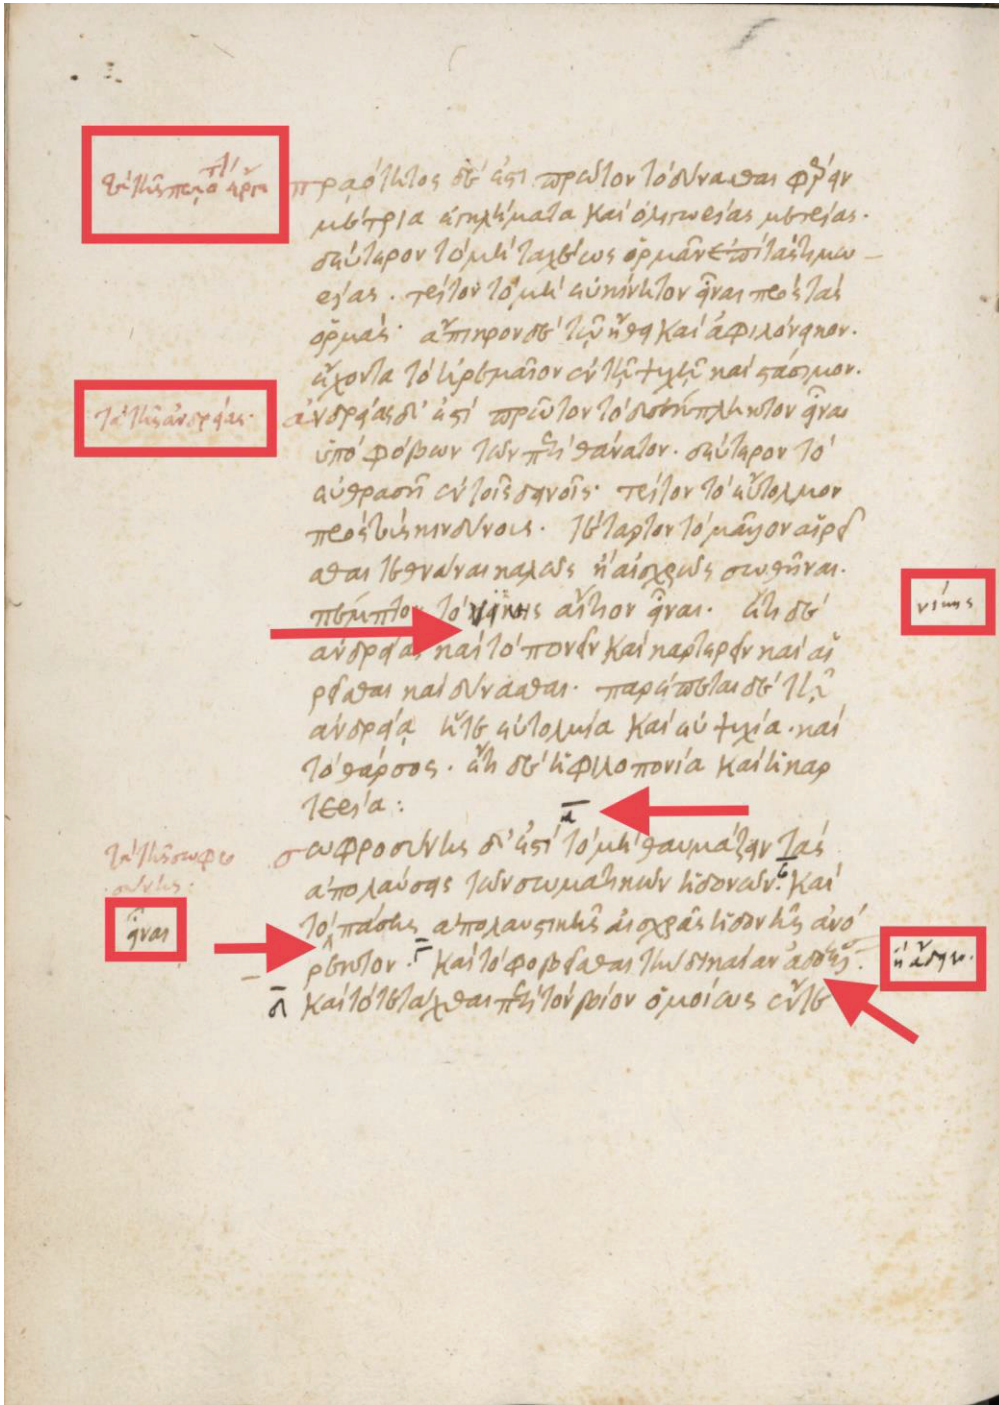 τὰ τῆς πραότητος
πραότητος δέ ἐστι πρῶτον τὸ δύνασθαι φέρειν
μέτρια ἐγκλήματα καὶ ὀλιγωρίας μετρίας.
δεύτερον τὸ μὴ ταχέως ὁρμᾶν ἐπὶ τὰς τιμω
ρίας. τρίτον τὸ μὴ εὐκίνητον εἶναι πρὸς τὰς
ὀργάς. ἄπικρον δὲ τῷ ἤθει καὶ ἀφιλόνεικον.
ἔχοντα τὸ ἠρεμαῖον ἐν τῇ ψυχῇ καὶ στάσιμον.
τὰ τῆς ἀνδρείας.
ἀνδρείας δ' ἐστὶ πρῶτον τὸ δυσέκπληκτον εἶναι
ὑπὸ φόβων τῶν περὶ θάνατον. δεύτερον τὸ
εὐθαρσῆ ἐν τοῖς δεινοῖς. τρίτον τὸ εὔτολμον
πρὸς τοὺς κινδύνους. τέταρτον τὸ μᾶλλον αἱρεῖ
σθαι τεθνάναι καλῶς ἢ αἰσχρῶς σωθῆναι.
πέμπτον τὸ νίκης αἴτιον εἶναι. ἔτι δὲ
νίκης
ἀνδρείας καὶ τὸ πονεῖν καὶ καρτερεῖν καὶ αἱ
ρεῖσθαι καὶ δύνασθαι. παρέπεται δὲ τῇ
ἀνδρείᾳ ἥτε εὐτολμία καὶ εὐψυχία. καὶ
τὸ θάρσος. ἔτι δὲ ἡ φιλοπονία καὶ ἡ καρ
τερία:
α
τὰ τῆς σωφρο
σύνης:
σωφροσύνης δ' ἐστὶ τὸ μὴ θαυμάζειν τὰς
ἀπολαύσεις τῶν σωματικῶν ἡδονῶν. β καὶ
εἶναι
τὸ πάσης ἀπολαυστικῆς αἰσχρᾶς ἡδονῆς ἀνό
ρεκτον. γ καὶ τὸ φοβεῖσθαι τὴν δικαίαν ἀδοξίαν.
δ καὶ τὸ τετάχθαι περὶ τὸν βίον ὁμοίως ἔν τε